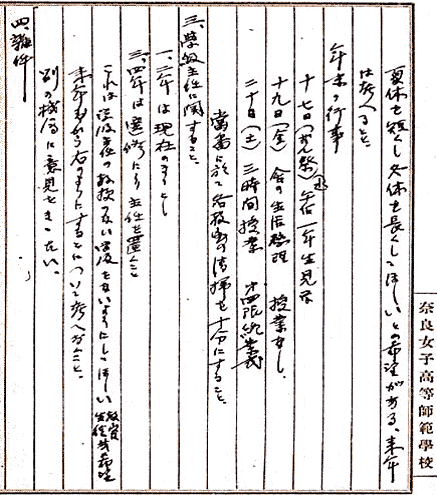 夏休を短くし冬休を長くしてほしいとの希望がある、来年
は考へること、
年末の行事
十七日 午后一年生見学
十九日(金) 舎の生活整理 授業なし、
二十日(土) 三時間授業 才四限終業式
に於て各教室の清掃を十分にすること、
三、学級主任に関すること、
一、二年は現在のまゝとし
三、四年は選修により主任を置くこと
これは学級主任の教授のない学級をないようにしてほしい 教官 生徒共希望
来年度から右のようにすることについて考へおくこと、
別の機会に意見をきゝたい、
四、雑件
奈良女子高等師範學校